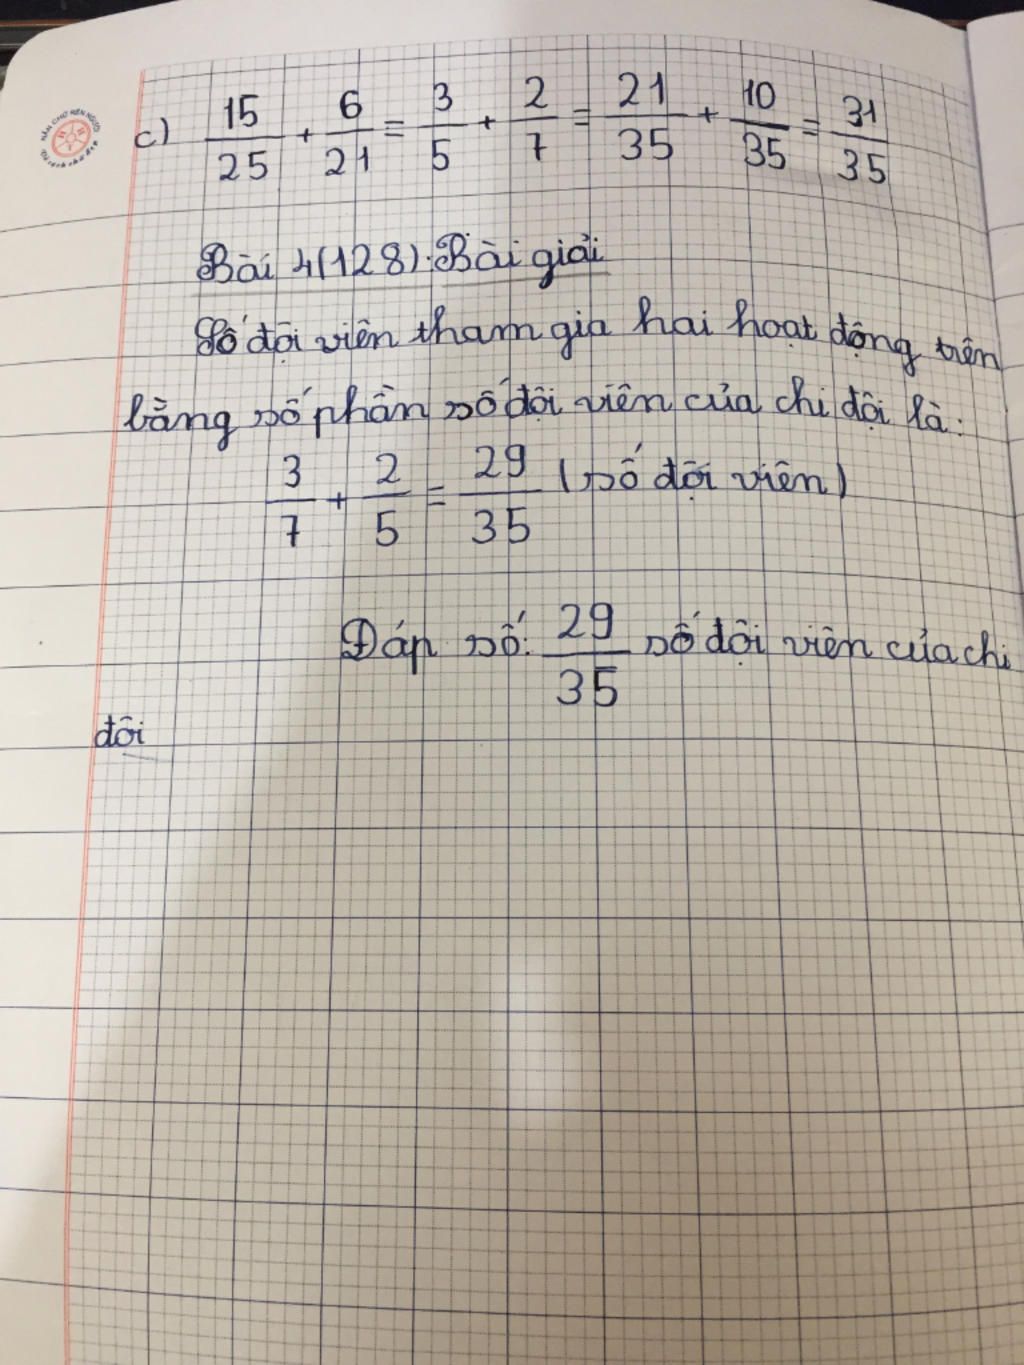 NÂN CHỮ NÊN NGƯỜI
c) 15/25 + 6/21 = 3/5 + 2/7 = 21/35 + 10/35 = 31/35
Bài 4(128): Bài giải
Số đội viên tham gia hai hoạt động trên
bằng số phần số đội viên của chi đội là:
3/7 + 2/5 = 29/35 (số đội viên)
Đáp số: 29/35 số đội viên của chi
đội